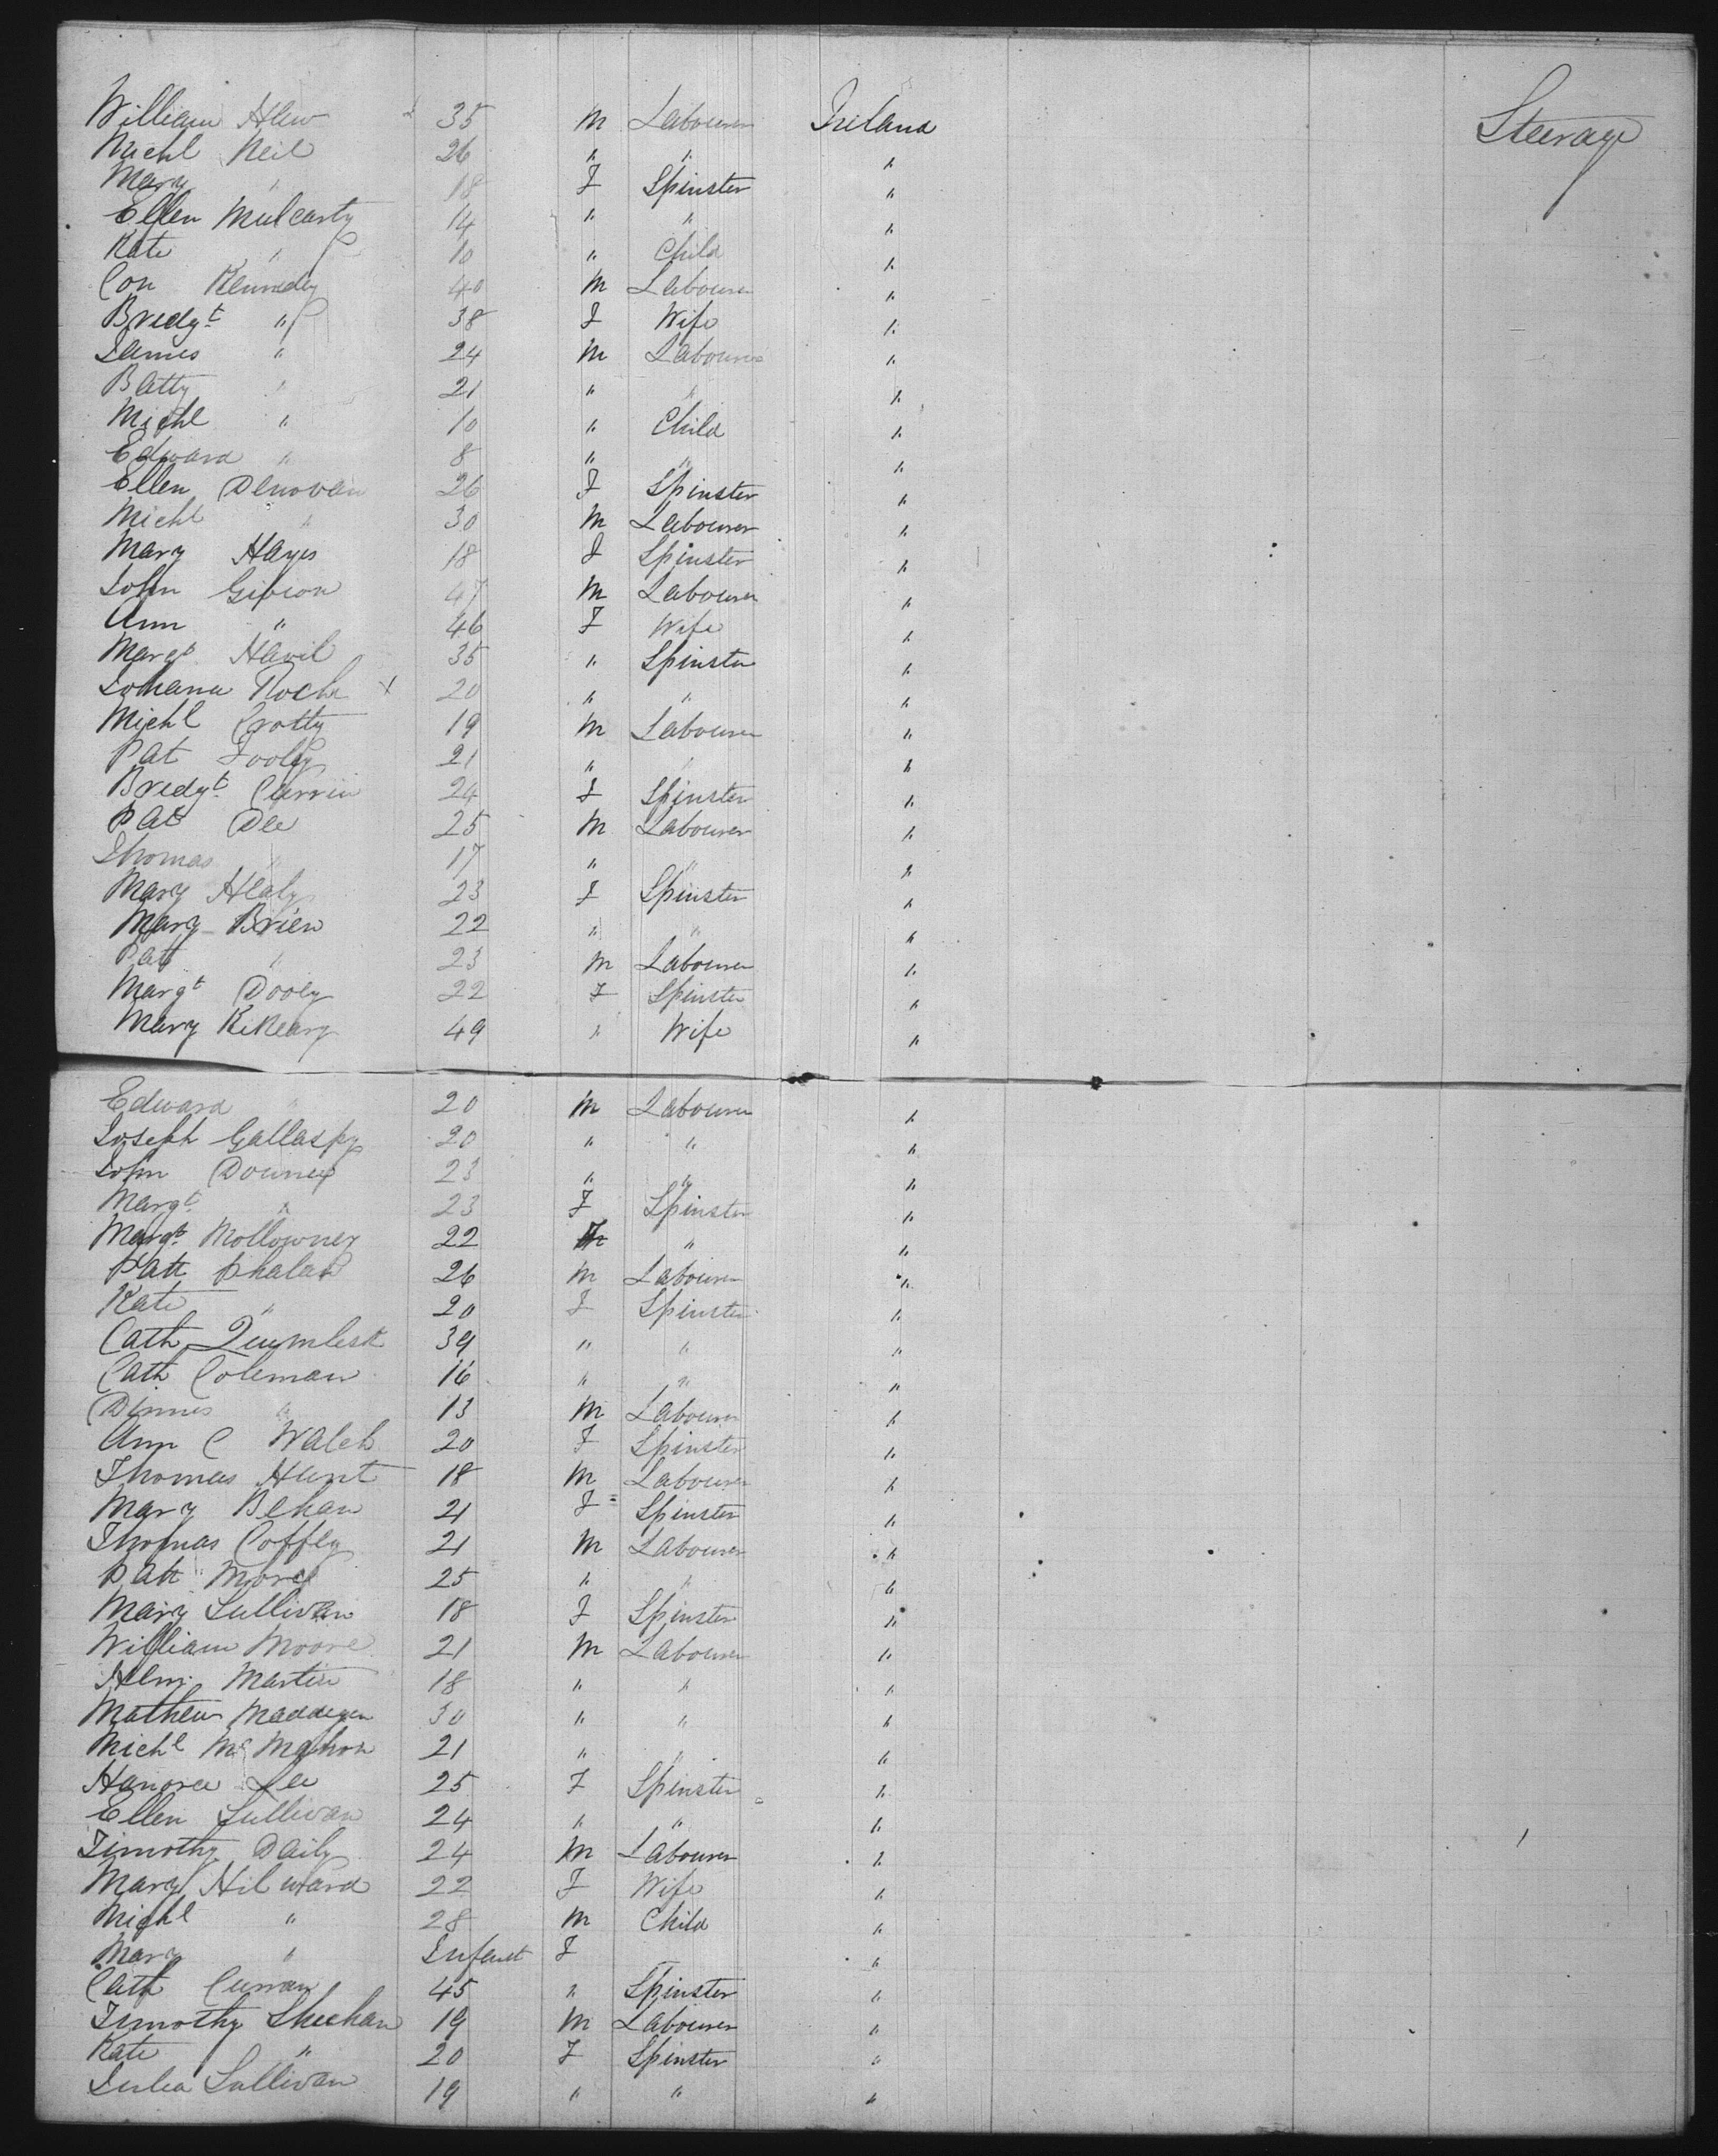 William Hew 35 M Labourer Ireland Steerage
Michl Neil 26 " " "
Mary " 18 F Spinster "
Ellen Mulcarty 14 " " "
Kate " 10 " Child "
Con Kennedy 40 M Labourer "
Bredgt " 38 F Wife "
James " 24 M Labourer "
Batty " 21 " " "
Michl " 10 " Child "
Edward " 8 " " "
Ellen Denovan 26 F Spinster "
Michl " 30 M Labourer "
Mary Hayes 18 F Spinster "
John Gibson 47 M Labourer "
Ann " 46 F Wife "
Margt Havil 35 " Spinster "
Johana Roche x 20 " " "
Michl Crotty 19 M Labourer "
Pat Fooley 21 " " "
Bredgt Currin 24 F Spinster "
Pat Dee 25 M Labourer "
Thomas " 17 " " "
Mary Healy 23 F Spinster "
Mary Brien 22 " " "
Patt " 23 M Labourer "
Margt Dooly 22 F Spinster "
Mary Kikeary 49 " Wife "
Edward " 20 M Labourer "
Joseph Gallaspy 20 " " "
John Downey 23 " " "
Margt " 23 F Spinster "
Margt Mollowney 22 F " "
Patt Phalan 26 M Labourer "
Kate " 20 F Spinster "
Cath 39 " " "
Cath Coleman 16 " " "
Dinnes " 13 M Labourer "
Ann C Walch 20 F Spinster "
Thomas Hunt 18 M Labourer "
Mary Behan 21 F Spinster "
Thomas Coffey 21 M Labourer "
Patt More 25 " " "
Mary Sullivan 18 F Spinster "
William Moore 21 M Labourer "
Henry Martin 18 " " "
Mathew Maddegen 30 " " "
Michl Mc Mahon 21 " " "
Hanora Lee 25 F Spinster "
Ellen Sullivan 24 " " "
Timothy Daily 24 M Labourer "
Mary Hilward 22 F Wife "
Michl " 28 M Child "
Mary " Infant F "
Cath Curran 45 " Spinster "
Timothy Sheehan 19 M Labourer "
Kate " 20 F Spinster "
Julia Sullivan 19 " " "